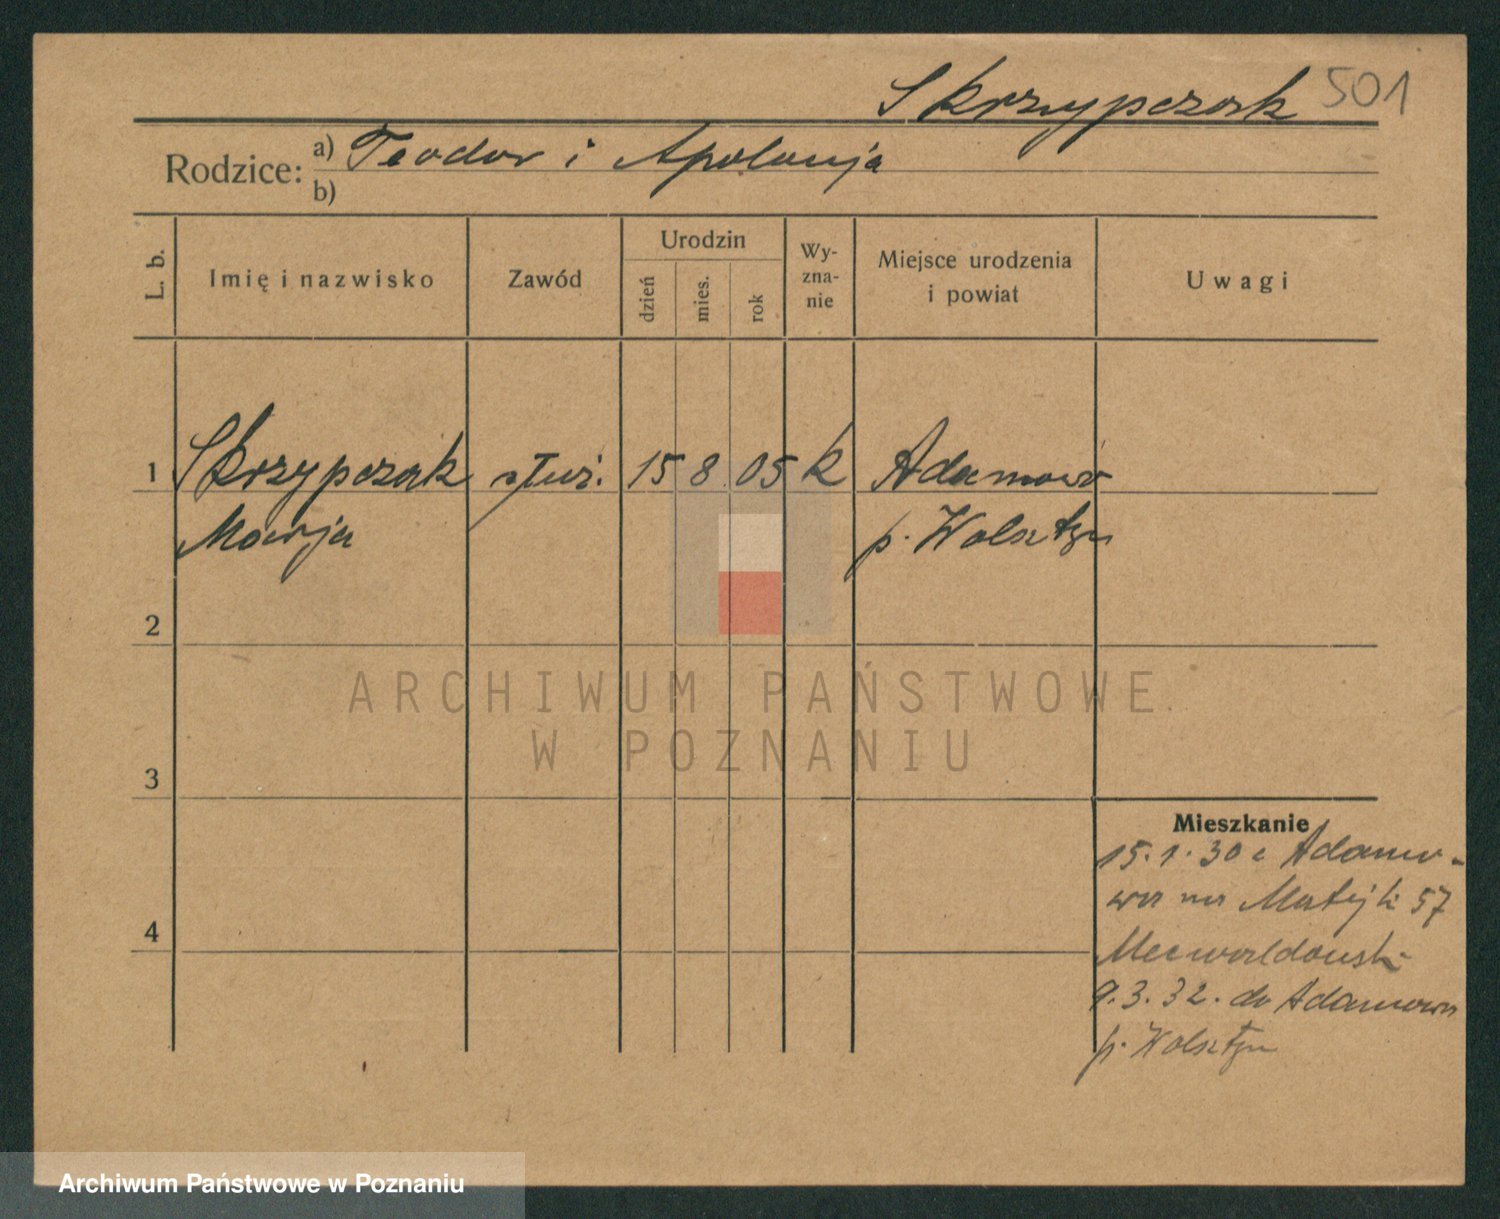 Skrzypczak 501
Rodzice: a) Teodor i Apolonja
b)
L. b.
Imię i nazwisko
Zawód
Urodzin
dzień
mies.
rok
Wy-
zna-
nie
Miejsce urodzenia
i powiat
Uwagi
1 Skrzypczak służ. 15 8 05 k Adamowo
Marja p. Wolsztyn
2
ARCHIWUM PAŃSTWOWE
W POZNANIU
3
Mieszkanie
15.1.30 z Adamo-
wa na Matejki 57
9.3.32. do Adamowa
p. Wolsztyn
4
Archiwum Państwowe w Poznaniu